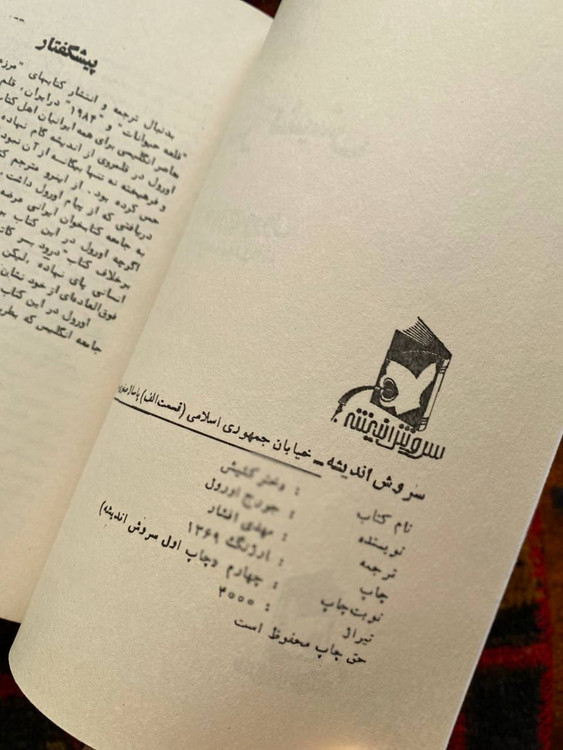 سروش اندیشه
سروش اندیشه ــ خیابان جمهوری اسلامی (قسمت الف) پاساژ
نام کتاب : دختر کشیش
نویسنده : جورج اورول
ترجمه : مهدی افشار
چاپ : ارژنگ ۱۳۶۹
نوبت چاپ : چهارم (چاپ اول سروش اندیشه)
تیراژ : ۴۰۰۰
حق چاپ محفوظ است
پیشگفتار
بدنبال ترجمه و انتشار کتابهای
"قلعه حیوانات" و "۱۹۸۴" در ایران، قلم
معاصر انگلیسی برای همه ایرانیان اهل کتاب
اورول در قلمروی از اندیشه گام نهاده
و فرهیخته نه تنها بیگانه از آن نبود
حس کرده بود. از اینرو مترجم
دریافتی که از پیام اورول داشت
به جامعه کتابخوان ایرانی عرضه
اگرچه اورول در این کتاب
برخلاف کتاب "درود بر
انسانی پای نهاده، لیکن
فوق‌العاده‌ای از خود نشان
اورول در این کتاب
جامعه انگلیس که